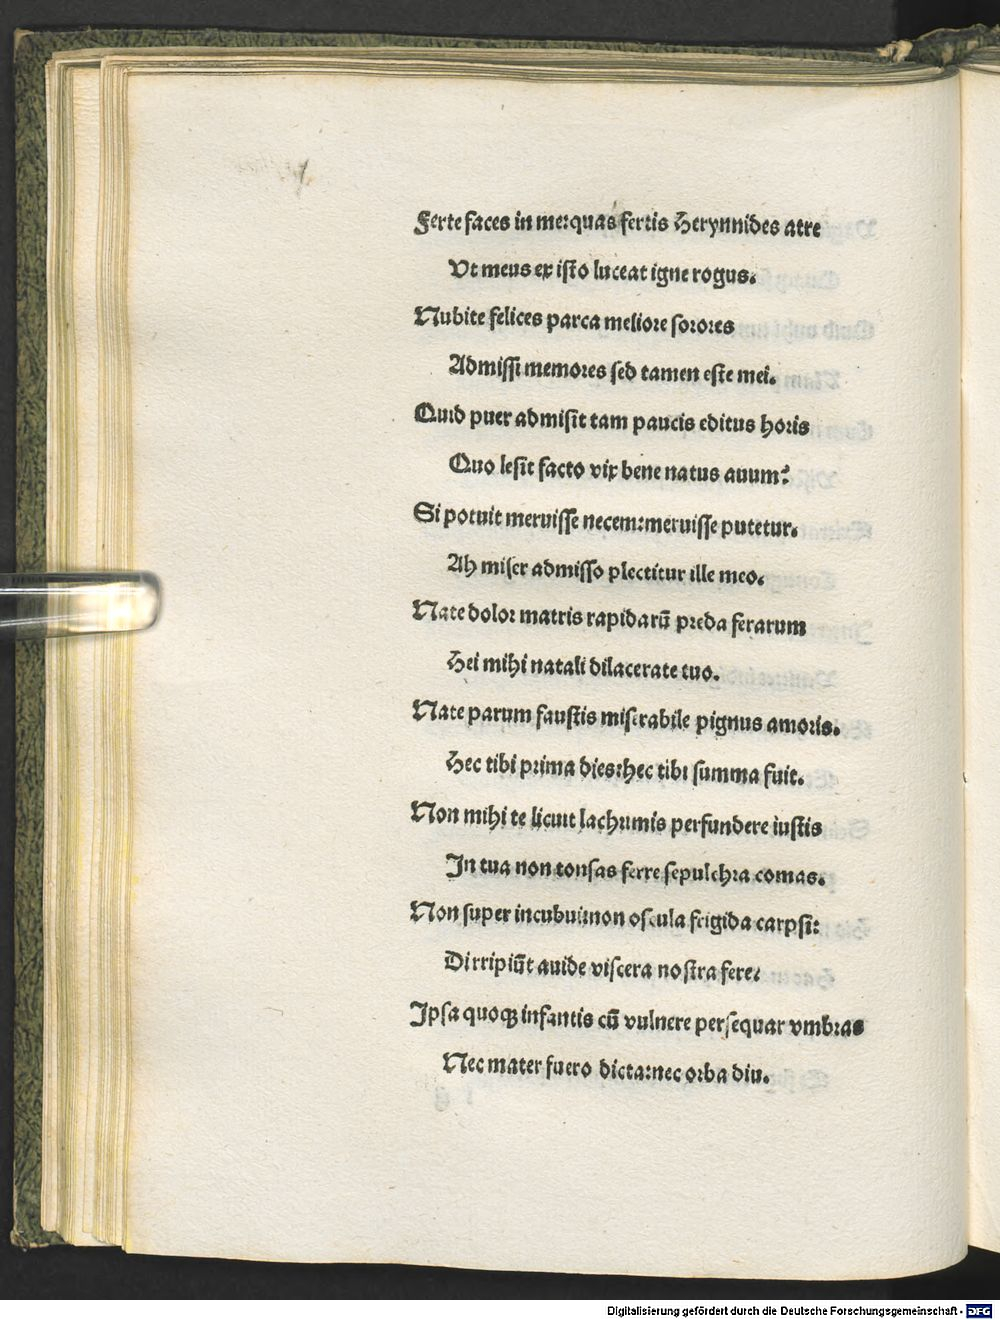 Ferte faces in me:quas fertis Herynnides atre
Vt meus ex isto luceat igne rogus.
Nubite felices parca meliore sorores
Admissi memores sed tamen este mei.
Quid puer admisit tam paucis editus horis
Quo lesit facto vix bene natus auum?
Si potuit meruisse necem:meruisse putetur.
Ah miser admisso plectitur ille meo.
Nate dolor matris rapidarū preda ferarum
Hei mihi natali dilacerate tuo.
Nate parum faustis miserabile pignus amoris.
Hec tibi prima dies:hec tibi summa fuit.
Non mihi te licuit lachrimis perfundere iustis
In tua non tonsas ferre sepulchra comas.
Non super incubui:non oscula frigida carpsi:
Dirripiūt auide viscera nostra fere:
Ipsa quoqꝫ infantis cū vulnere persequar vmbras
Nec mater fuero dicta:nec orba diu.
Digitalisierung gefördert durch die Deutsche Forschungsgemeinschaft - DFG